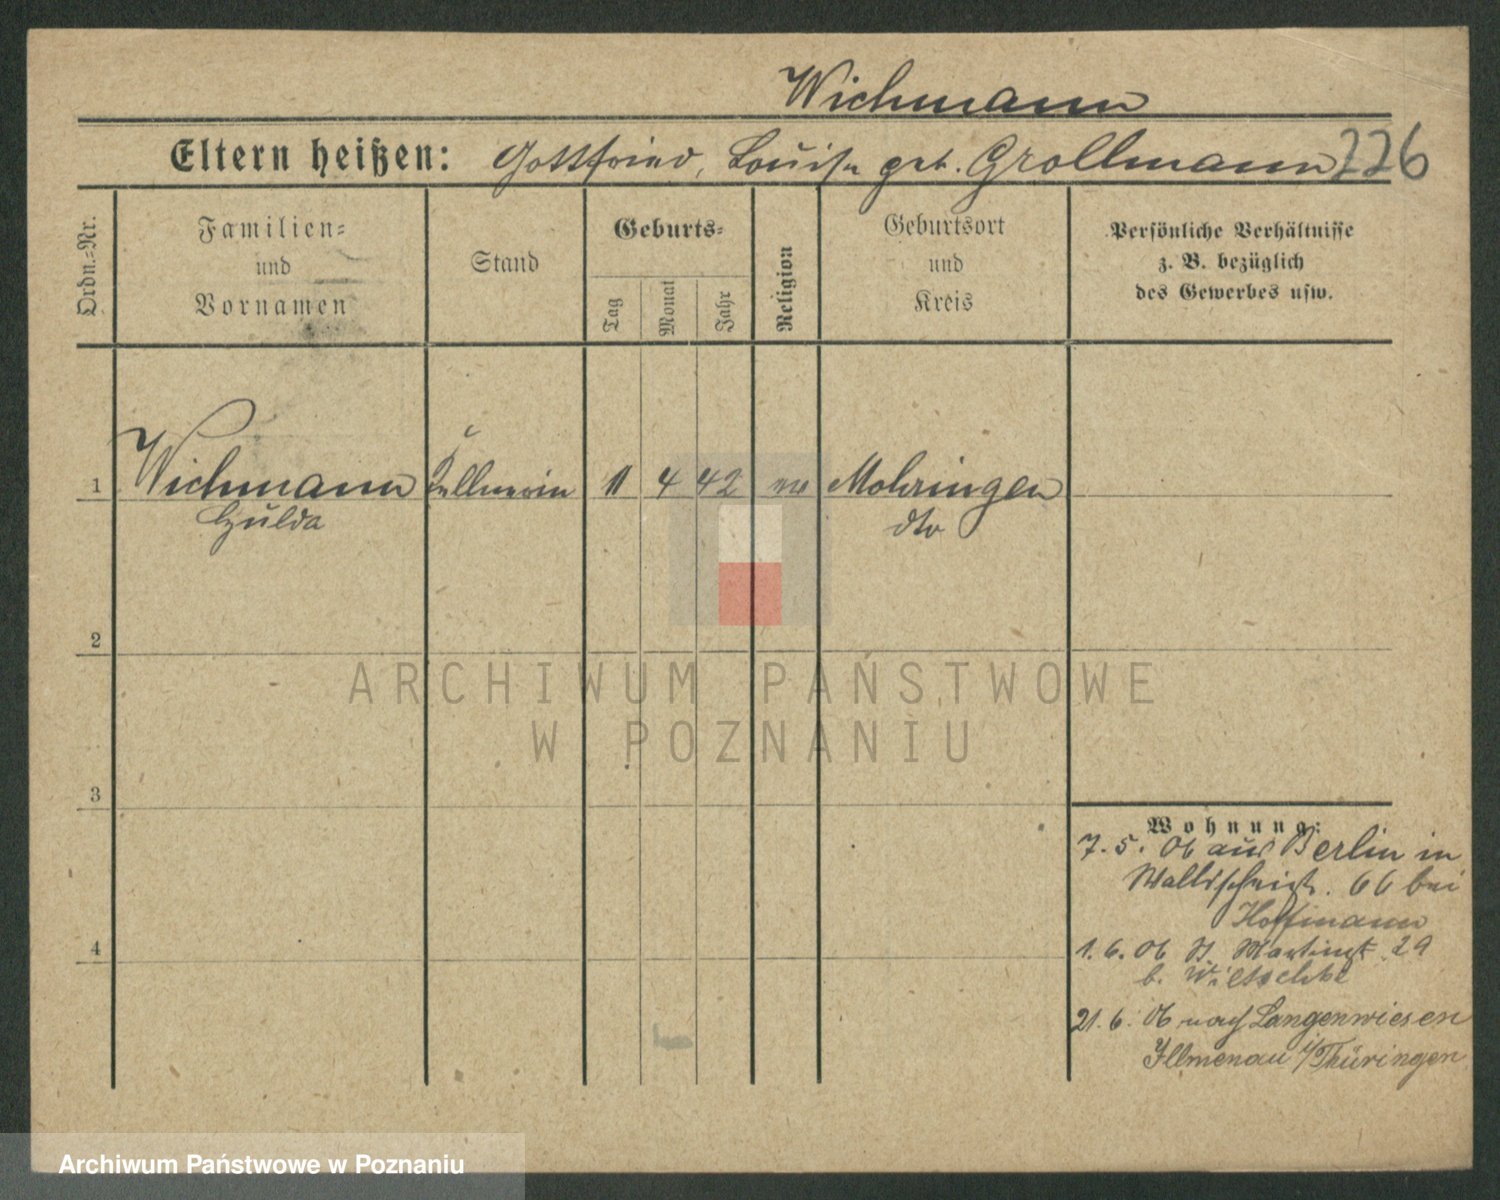 Wichmann
Eltern heißen: Gottfried, Louise geb. Grollmann 226
Ordn.-Nr.
Familien-
und
Vornamen
Stand
Geburts-
Tag
Monat
Jahr
Religion
Geburtsort
und
Kreis
Persönliche Verhältnisse
z. B. bezüglich
des Gewerbes usw.
1 Wichmann Kellnerin 11 4 42 ev Mohringen
Hulda dto
2
3
4
Wohnung:
7.5. 06 aus Berlin in
66 bei
Hoffmann
1.6. 06 St. Martinst. 29
b. Wiltschke
21.6. 06 nach Langenwiesen
Illmenau i/Thüringen
ARCHIWUM PAŃSTWOWE
W POZNANIU
Archiwum Państwowe w Poznaniu